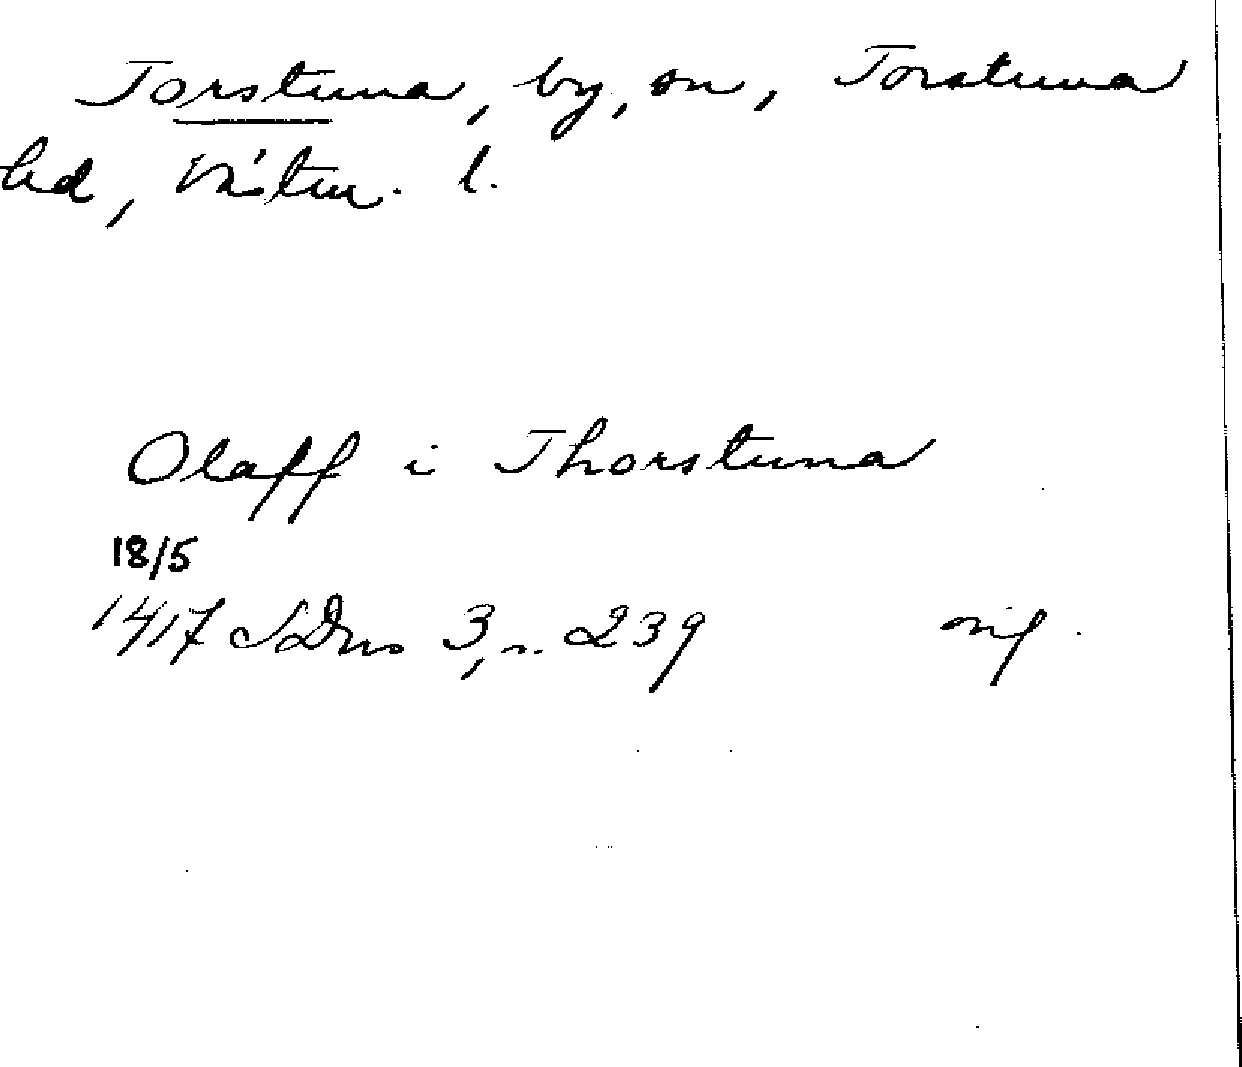 Torstuna, by, sn, Torstuna
hd, Västm. l.
Olaff i Thorstuna
18/5
1417 SDns 3, n. 239 orig.